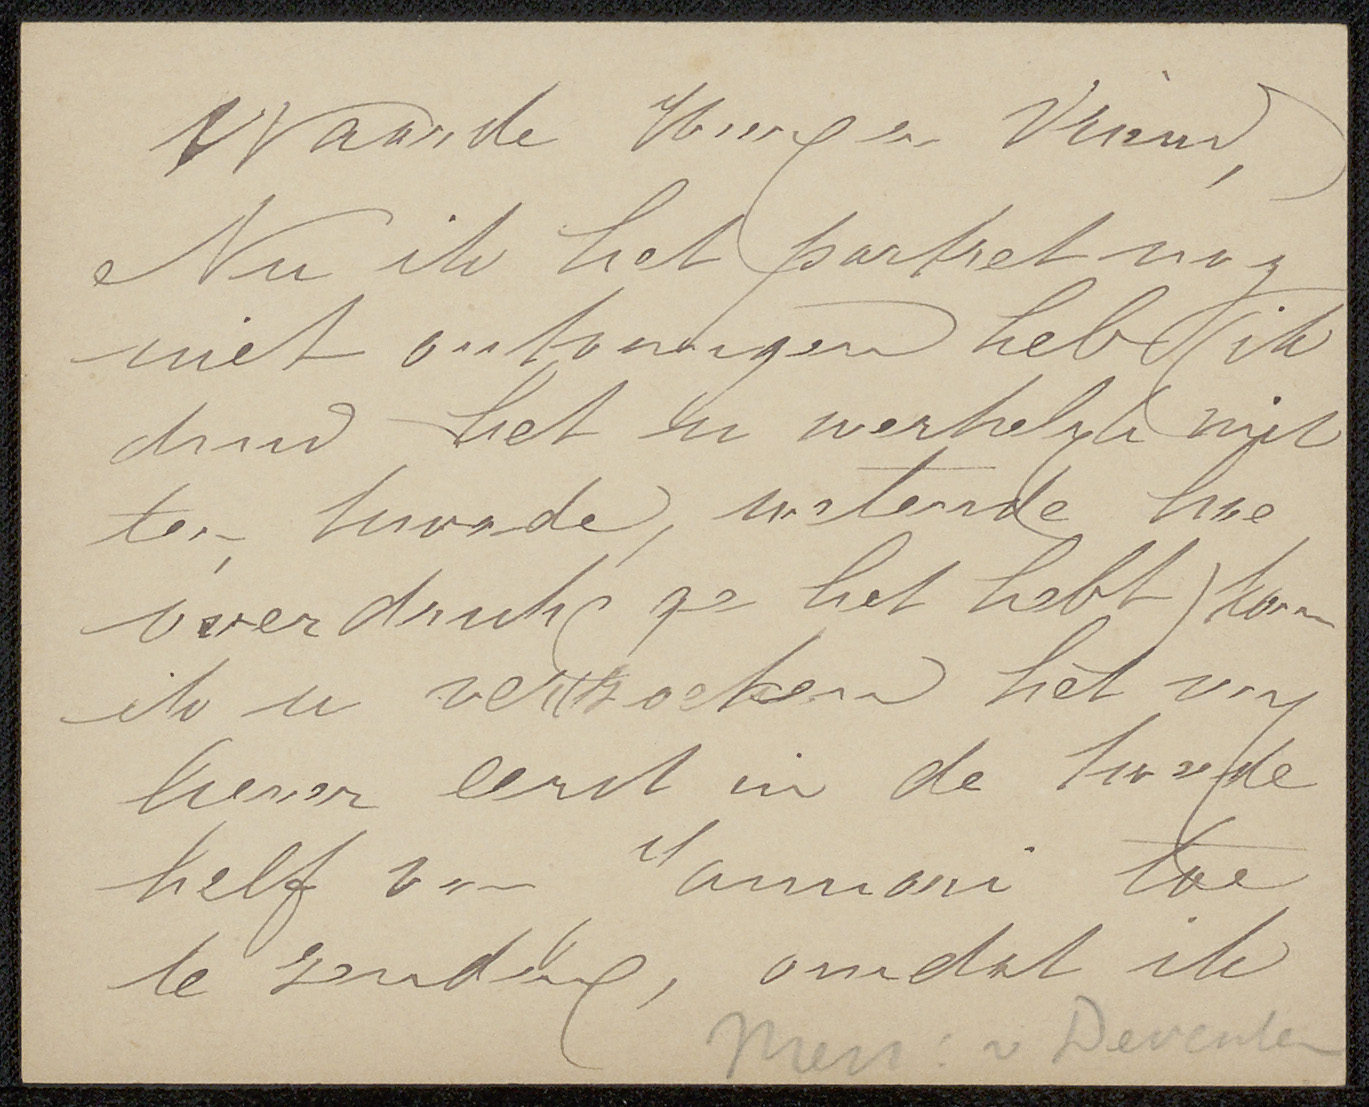 Waarde Jonge Vriend,
Nu ik het portret nog
niet ontvangen heb (ik
duid het u werkelijk niet
ten kwade, wetende hoe
overdruk ge het hebt) kom
ik u verzoeken het my
liever eerst in de tweede
helf van Januari toe
te zenden, omdat ik
Mevr: v Deventer